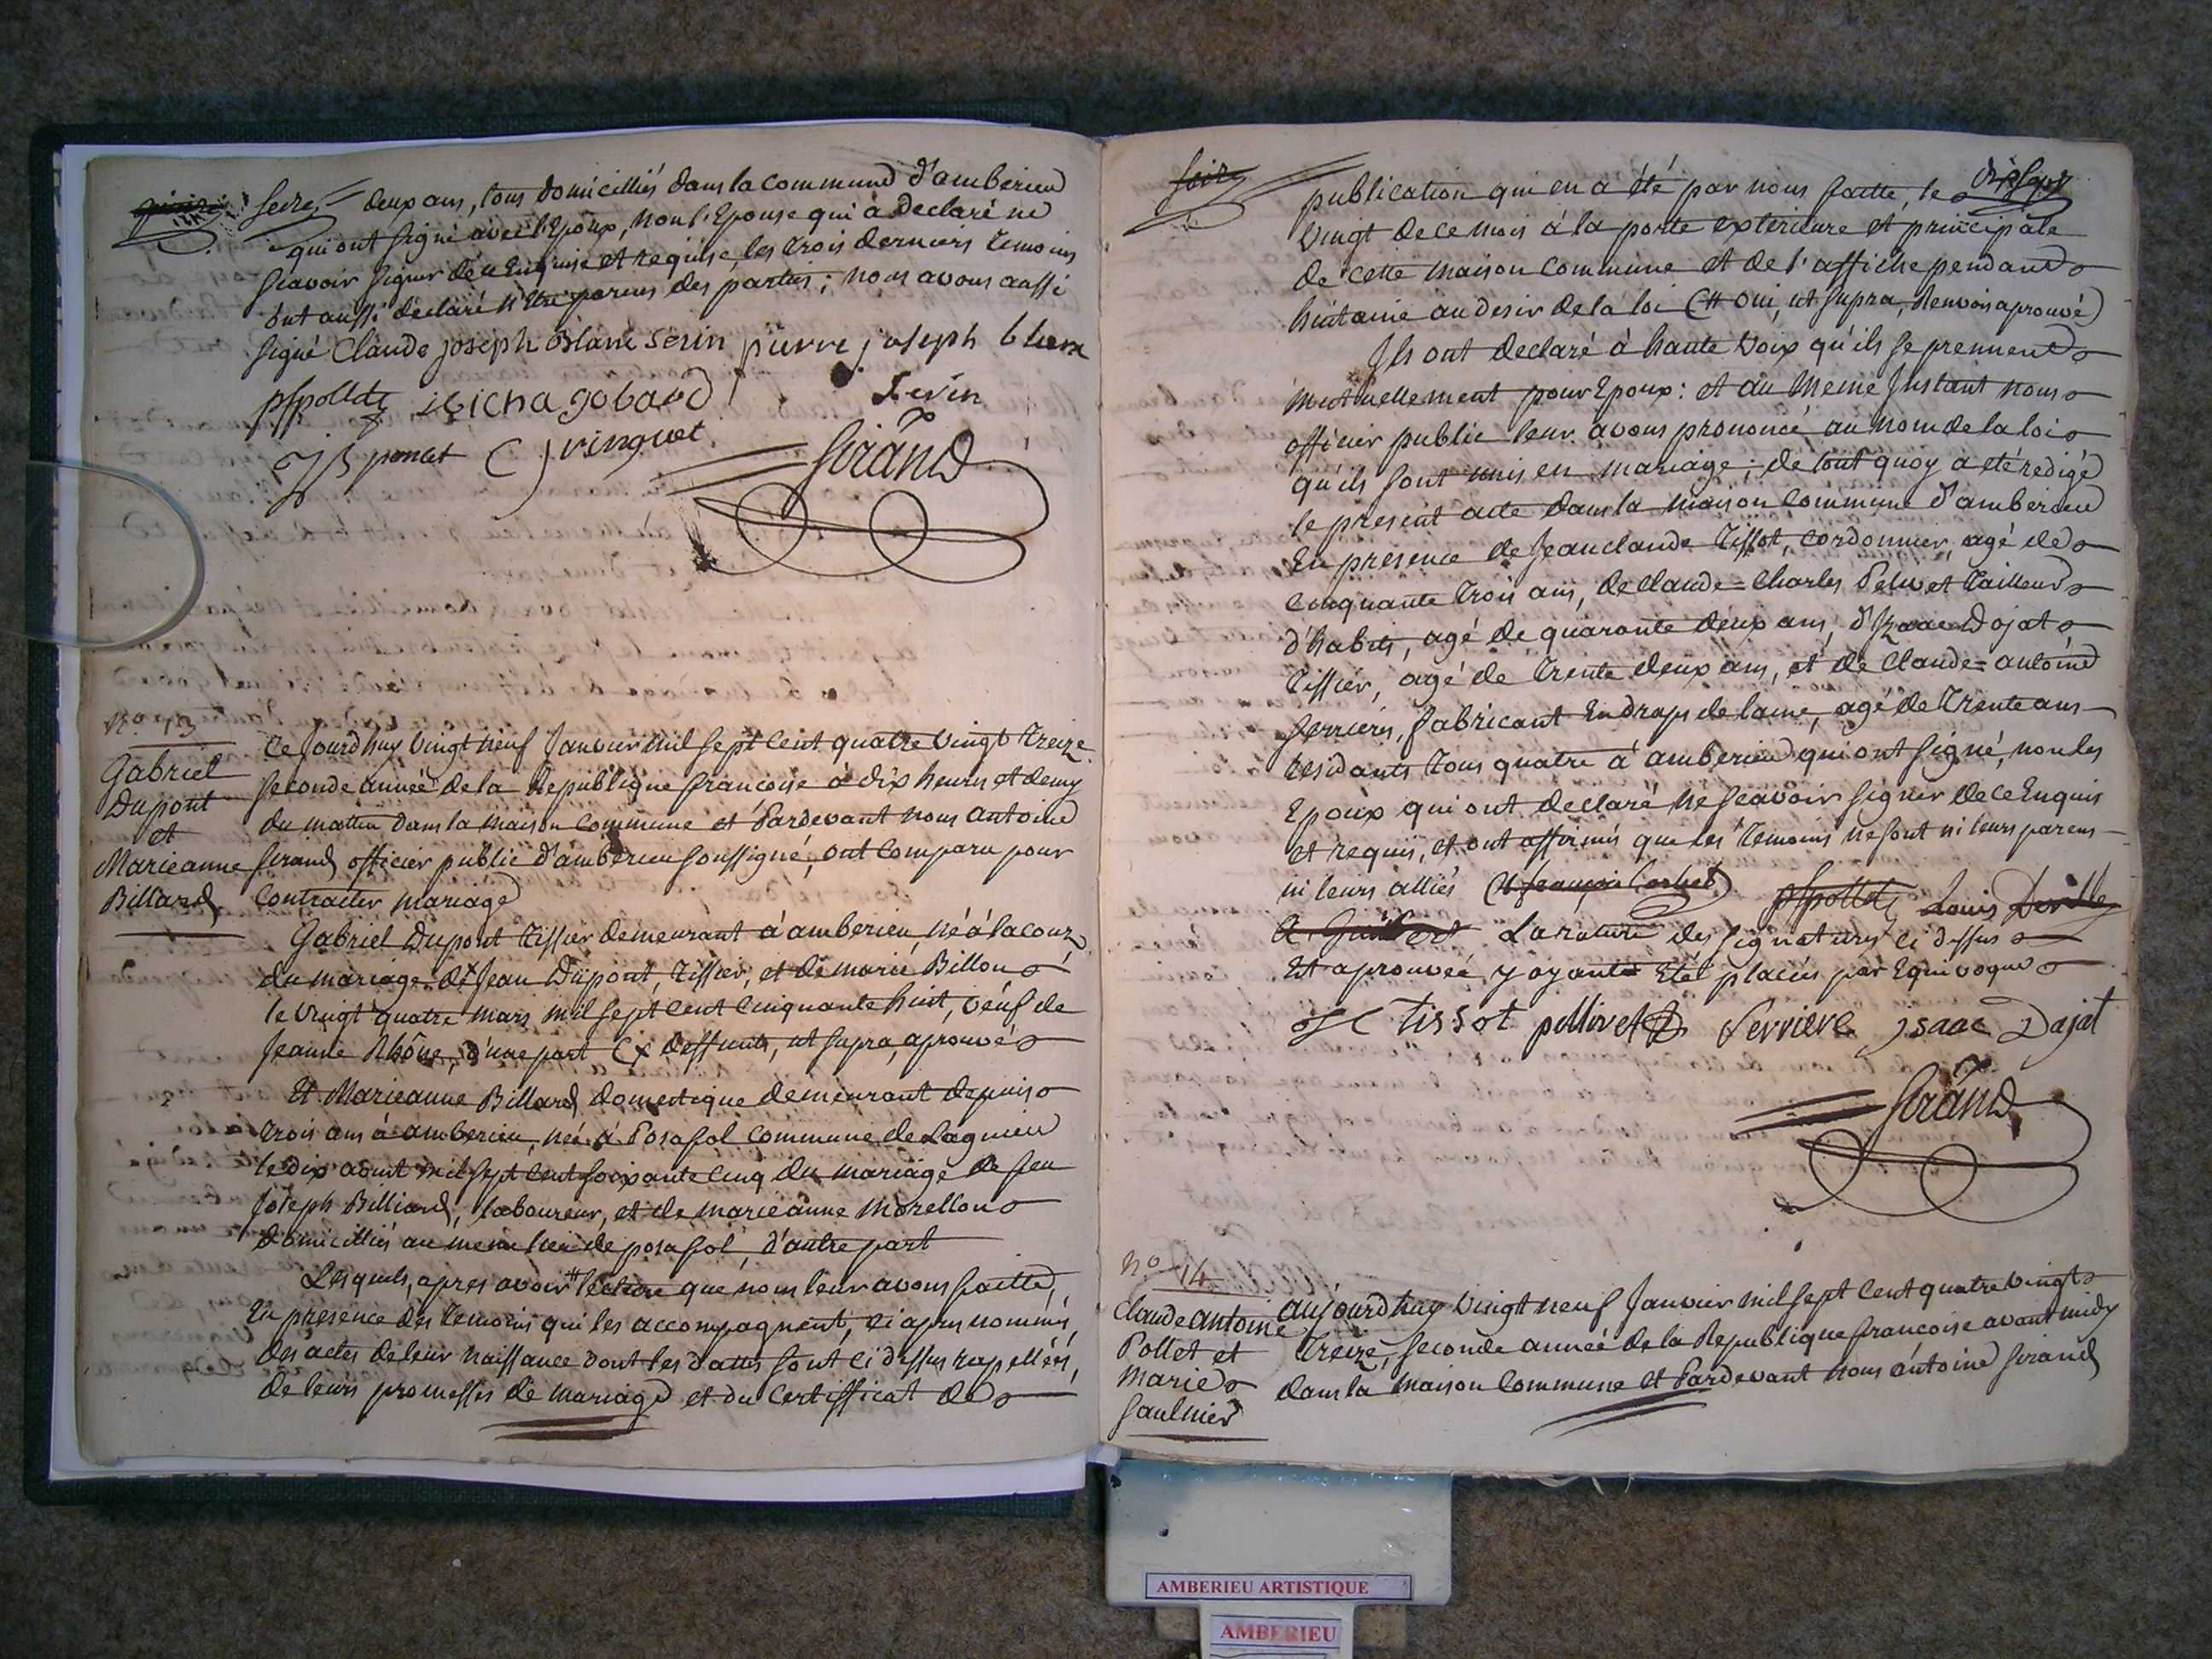 seize deux ans, tous domicilliés dans la commune d'amberieu
qui ont signé avec l'Epoux, non l'Epouse qui a declaré ne
scavoir signer de ce Enquise et requise, les trois derniers temoins
ont aussi declaré n'être parens des parties; nous avons aussi
signé Claude joseph Blanc serin pierre joseph
serin
pspollet micha gobard
JB poncet C J vinguet
Sirand
N.o 13
Gabriel
Dupont
et
Marieanne
Billard
Ce Jourdhuy vingt neuf Janvier mil sept cent quatre vingt treize
seconde année de la Republique françoise à dix heures et demy
du matin dans la maison commune et Pardevant nous antoine
Sirand officier public d'amberieu soussigné, ont comparu pour
contracter mariage
Gabriel Dupont tissier demeurant à amberieu, né à la cour,
du mariage de Jean Dupont, tissier, et de marie Billon
le vingt quatre mars mil sept cent cinquante huit, veuf de
Jeanne Rhône, d'une part (x deffunts, ut supra, aprouvé
Et Marieanne Billard domestique demeurant depuis
trois ans à amberieu, née à Posafol commune de Lagnieu
le dix aoust mil sept cent soixante cinq du mariage de feu
Joseph Billiard, laboureur, et de marieanne Morellon
domicilliés au meme lieu de posafol, d'autre part
Lesquels, apres avoir # lecture que nous leur avons faitte,
En presence des temoins qui les accompagnent, ci apres nommés,
des actes de leur naissance dont les dattes sont ci dessus rapellées,
de leurs promesses de mariage et du certifficat de
publication qui en a été par nous faitte, le
vingt de ce mois à la porte exterieure et principale
de cette maison commune et de l'affiche pendant
huitaine au desir de la loi (# oui, ut supra, Renvois aprouvé)
Ils ont declaré à haute voix qu'ils se prennent
mutuellement pour Epoux: et au meme Instant nous
officier public leur avons prononcé au nom de la loi
qu'ils sont unis en mariage; de tout quoy a eté redigé
le present acte dans la maison commune d'amberieu
En presence de Jean claude Tissot, cordonnier, agé de
cinquante trois ans, de claude=charles Pelivet tailleur
d'habits, agé de quarante deux ans, d'Isaac Dojat
tissier, agé de trente deux ans, et de claude=antoine
ferriere, fabricant En draps de laine, agé de trente ans
residants tous quatre à amberieu qui ont signé, non les
Epoux qui ont declaré ne scavoir signer de ce Enquis
et requis, et ont affirmés que les temoins ne sont ni leurs parens
ni leurs alliés pspollet Louis Deville
La rature des signatures ci dessus
Est aprouvée, y ayante Eté placées par Equivoque
J C tissot pellivet ferriere jsaac Dajat
Sirand
N.o 14
Claude antoine
Pollet et
Marie
Saulnier
aujourd huy vingt neuf Janvier mil sept cent quatre vingt
treize, seconde année de la Republique francoise avant midy
dans la maison commune et Pardevant nous antoine sirand
AMBERIEU ARTISTIQUE
AMBERIEU